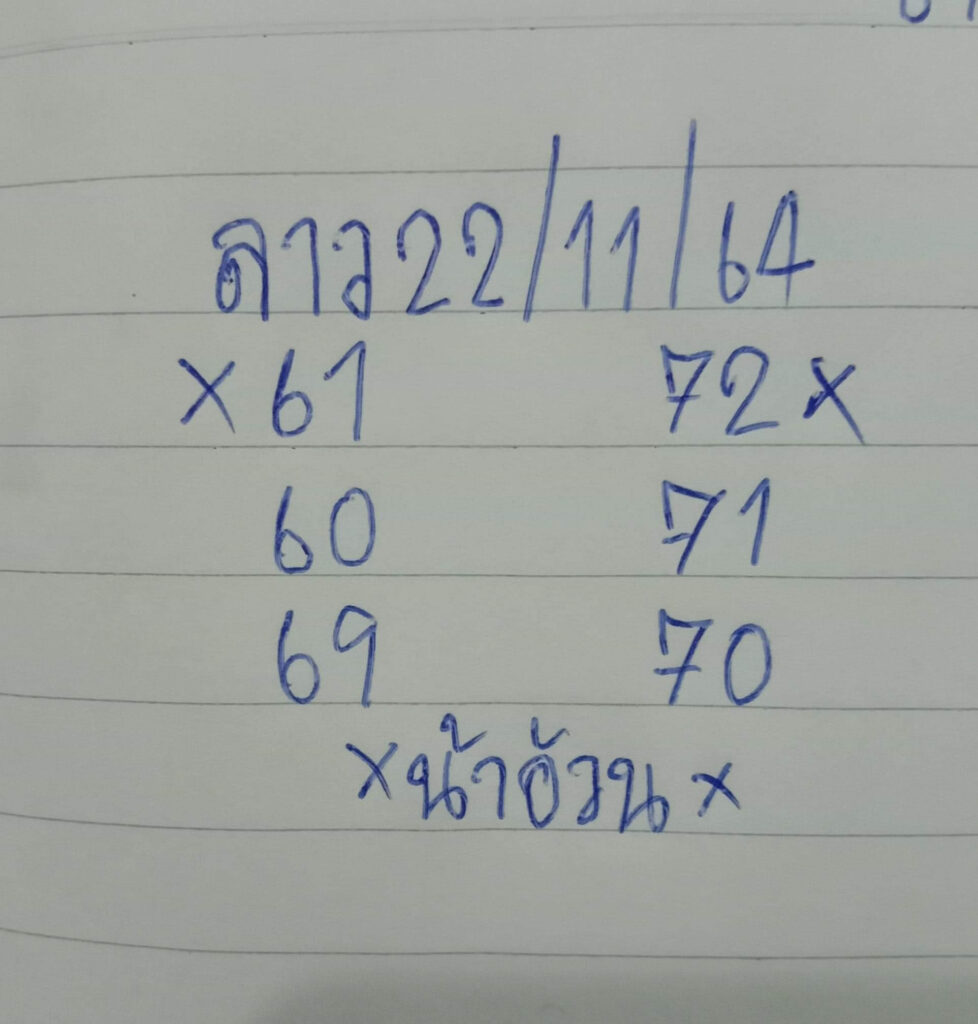 ลาว22/11/64
×61 72×
60 71
69 70
×น้าอ้วน×